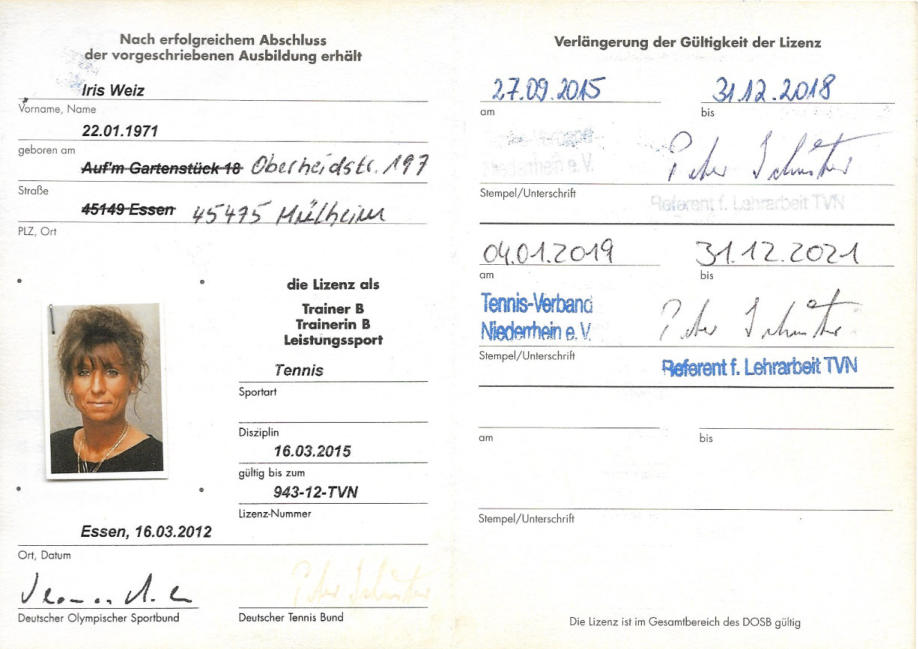 Nach erfolgreichem Abschluss
der vorgeschriebenen Ausbildung erhält
Iris Weiz
Vorname, Name
22.01.1971
geboren am
Auf'm Gartenstück 18 Oberheidstr. 197
Straße
45149 Essen 45475 Mülheim
PLZ, Ort
die Lizenz als
Trainer B
Trainerin B
Leistungssport
Tennis
Sportart
Disziplin
16.03.2015
gültig bis zum
943-12-TVN
Lizenz-Nummer
Essen, 16.03.2012
Ort, Datum
Deutscher Olympischer Sportbund
Deutscher Tennis Bund
Verlängerung der Gültigkeit der Lizenz
27.09.2015 31.12.2018
am bis
Niederrhein e.V.
Stempel/Unterschrift
Referent f. Lehrarbeit TVN
04.01.2019 31.12.2021
am bis
Tennis-Verband
Niederrhein e.V.
Stempel/Unterschrift
Referent f. Lehrarbeit TVN
am bis
Stempel/Unterschrift
Die Lizenz ist im Gesamtbereich des DOSB gültig